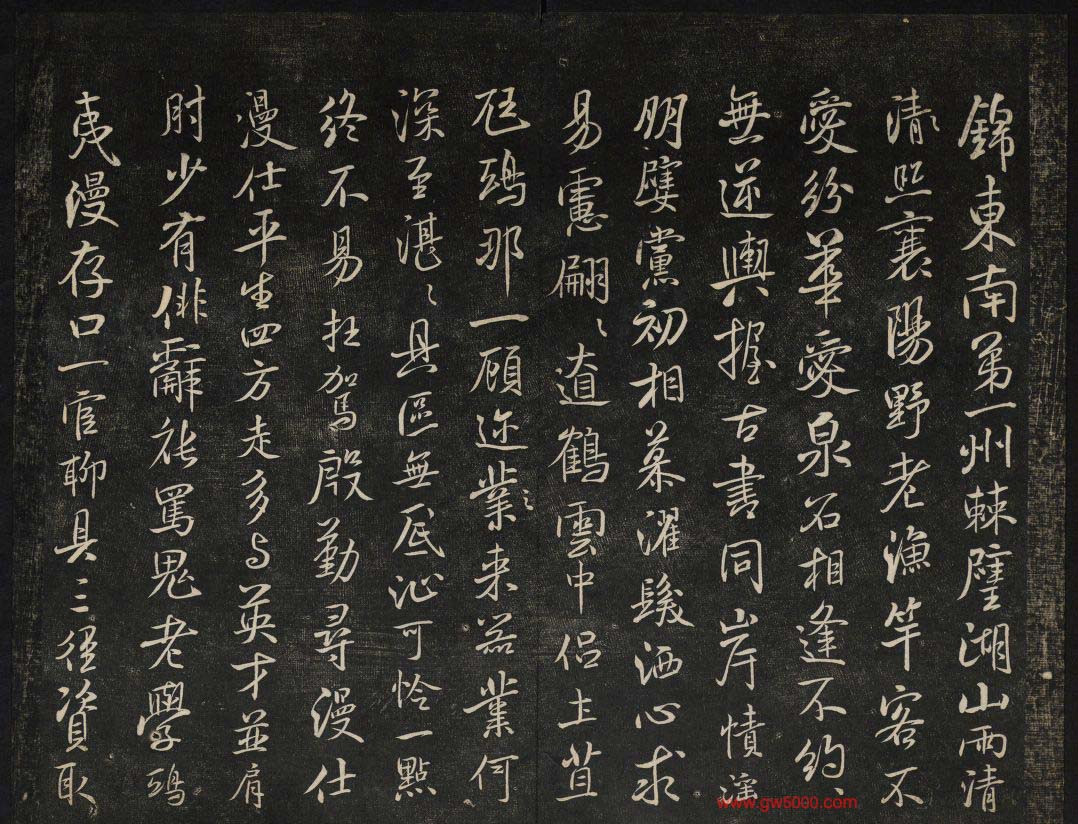 錦東南第一州棘璧湖山兩清
清照襄陽野老漁竿客不
愛紛華愛泉石相逢不約、
無逆輿握古書同岸幘淫
朋嬖黨初相慕濯髮洒心求
易慮翩〻遼鶴雲中侶土苴
尫鴟那一顧迩業〻来器業何
深至湛〻具區無底沚可怜一點
終不易枉駕殷勤尋漫仕
漫仕平生四方走多与英才並肩
肘少有俳辭能罵鬼老學鴟
夷漫存口一官聊具三徑資取
www.gw5000.com